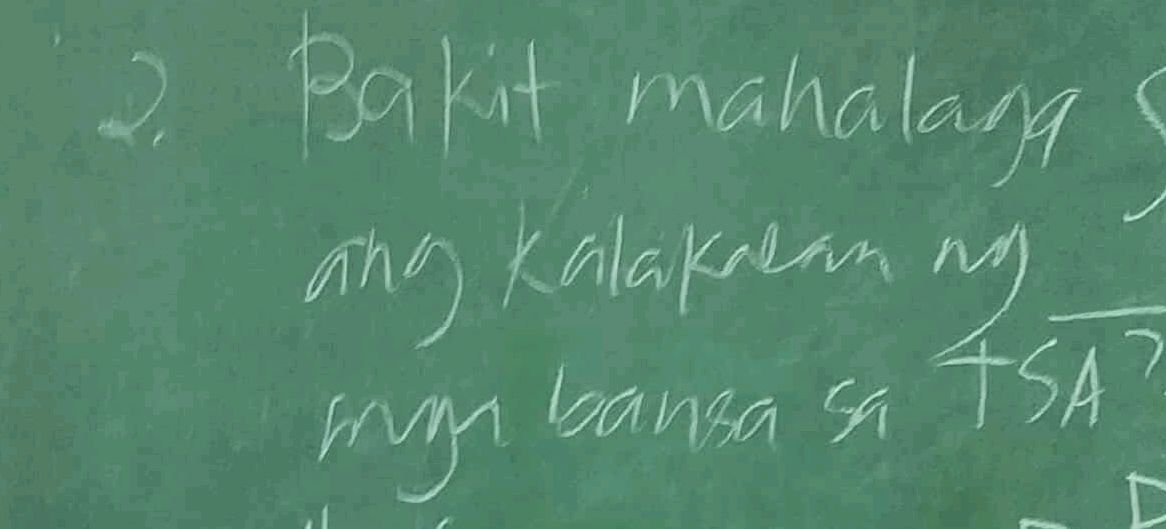 2. Bakit mahalaga
ang kalakalan ng
mga bansa sa TSA?